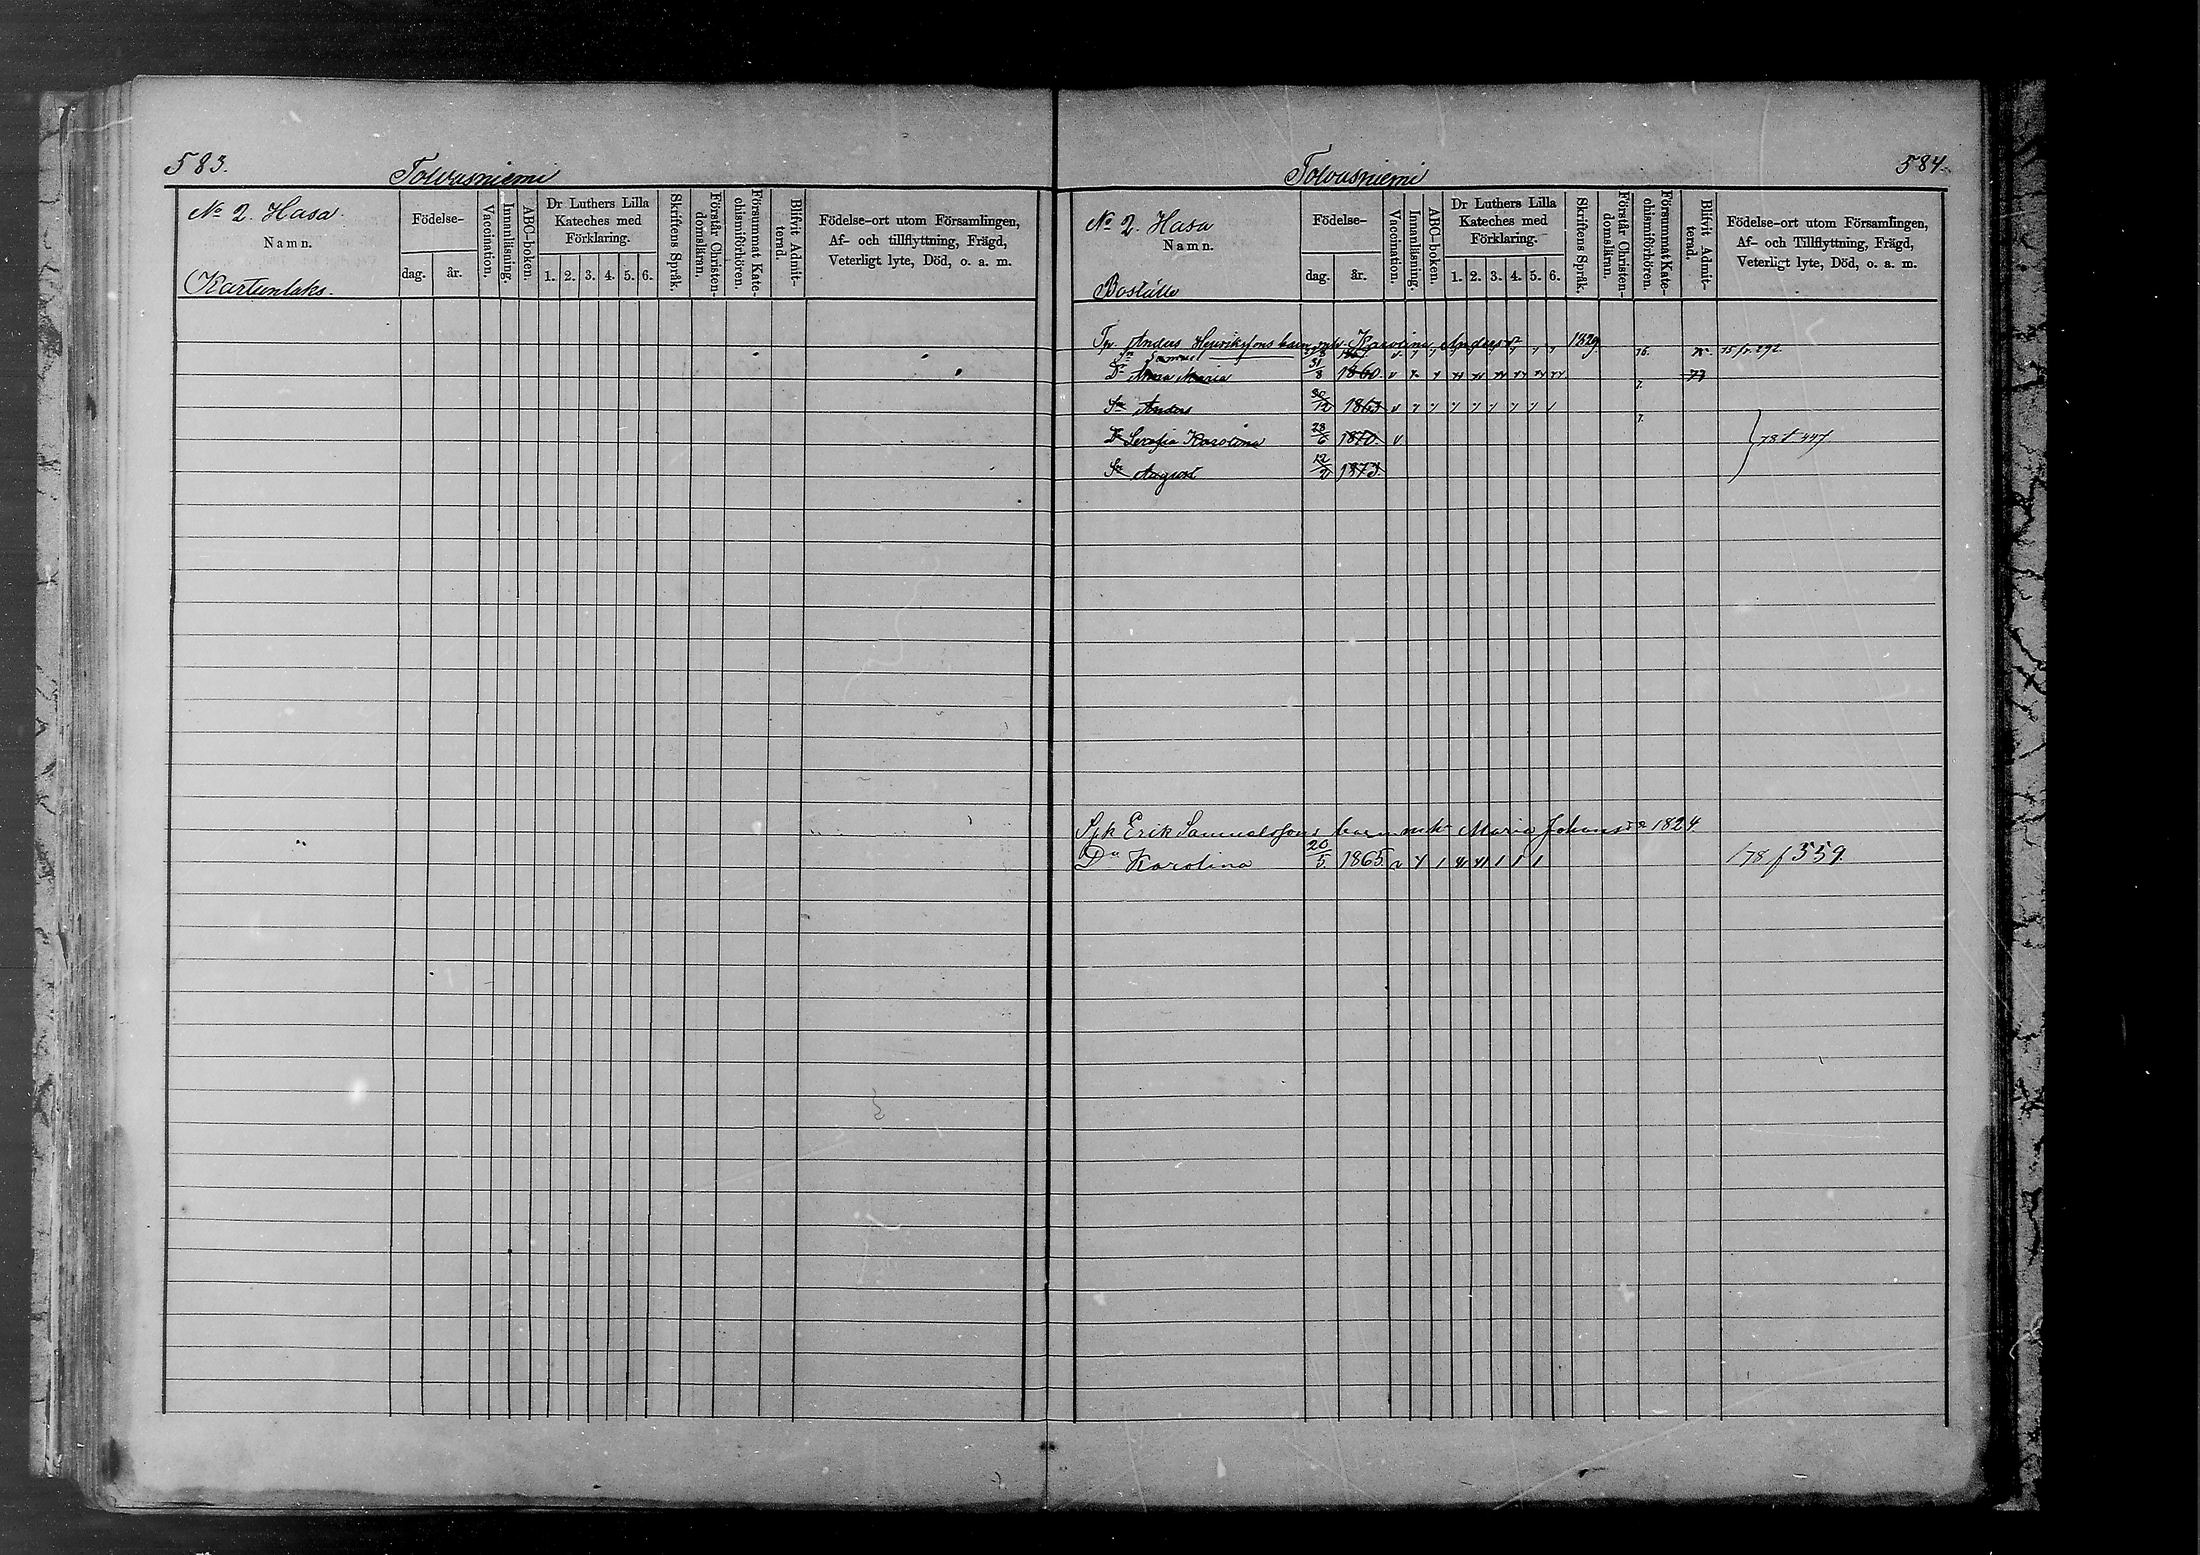 583.
Tolvusniemi
No 2. Hasa.
Namn.
Kartunlaks.
Födelse-
dag. år.
Vaccination.
Innanläsning.
ABC-boken.
Dr Luthers Lilla
Kateches med
Förklaring.
1. 2. 3. 4. 5. 6.
Skriftens Språk.
Förstår Christen-
domsläran.
Försummat Kate-
chismiförhören.
Blifvit Admit-
terad.
Födelse-ort utom Församlingen,
Af- och tillflyttning, Frägd,
Veterligt lyte, Död, o. a. m.
Tolvusniemi
584.
No 2. Hasa
Namn.
Boställe
Födelse-
dag. år.
Vaccination.
Innanläsning.
ABC-boken.
Dr Luthers Lilla
Kateches med
Förklaring.
1. 2. 3. 4. 5. 6.
Skriftens Språk.
Förstår Christen-
domsläran.
Försummat Kate-
chismiförhören.
Blifvit Admit-
terad.
Födelse-ort utom Församlingen,
Af- och Tillflyttning, Frägd,
Veterligt lyte, Död, o. a. m.
Tp. Anders Henrikssons barn m. Karolina Andersdr 1829.
Sn Samuel 76. 75 fr. 292
Dr Anna Maria 31/8 1860. v 7. 77
Sn Anders 30/12 1863 v 7.
Dr Serafia Karolina 28/6 1870. v 78 f 447
Sn August 12/2 1873.
Sjk Erik Samuelssons barn m. Maria Johansdr 1824.
Dr Karolina 20/5 1865. v 78 f 559.